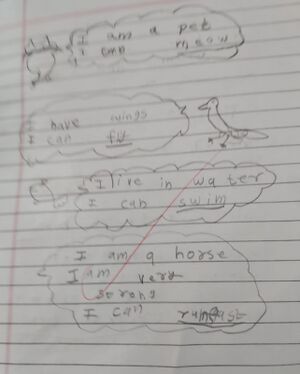 I am a pet
I can meow
I have wings
I can fly
I live in water
I can swim
I am a horse
I am very
strong
I can run fast